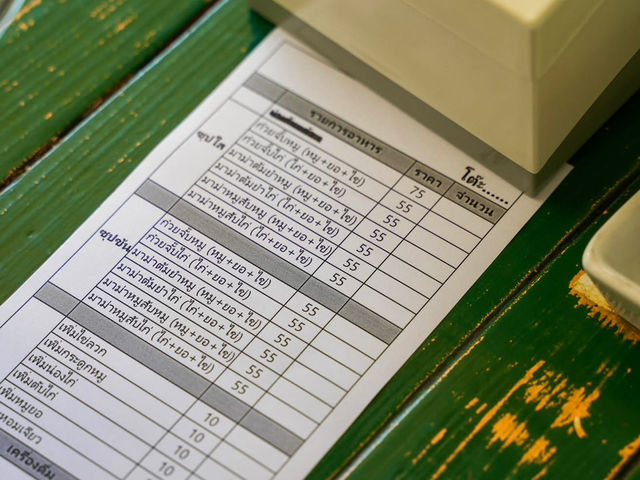 โต๊ะ......
รายการอาหาร ราคา จำนวน
75
ซุปใส
ก๋วยจั๊บหมู (หมู+ยอ+ไข่) 55
ก๋วยจั๊บไก่ (ไก่+ยอ+ไข่) 55
มาม่าต้มยำหมู (หมู+ยอ+ไข่) 55
มาม่าต้มยำไก่ (ไก่+ยอ+ไข่) 55
มาม่าหมูสับหมู (หมู+ยอ+ไข่) 55
มาม่าหมูสับไก่ (ไก่+ยอ+ไข่) 55
ซุปข้น
ก๋วยจั๊บหมู (หมู+ยอ+ไข่) 55
ก๋วยจั๊บไก่ (ไก่+ยอ+ไข่) 55
มาม่าต้มยำหมู (หมู+ยอ+ไข่) 55
มาม่าต้มยำไก่ (ไก่+ยอ+ไข่) 55
มาม่าหมูสับหมู (หมู+ยอ+ไข่) 55
มาม่าหมูสับไก่ (ไก่+ยอ+ไข่) 55
เพิ่มไข่ลวก 10
เพิ่มกระดูกหมู 10
เพิ่มน่องไก่ 10
เพิ่มตับไก่ 10
เพิ่มหมูยอ
หอมเจียว
เครื่องดื่ม